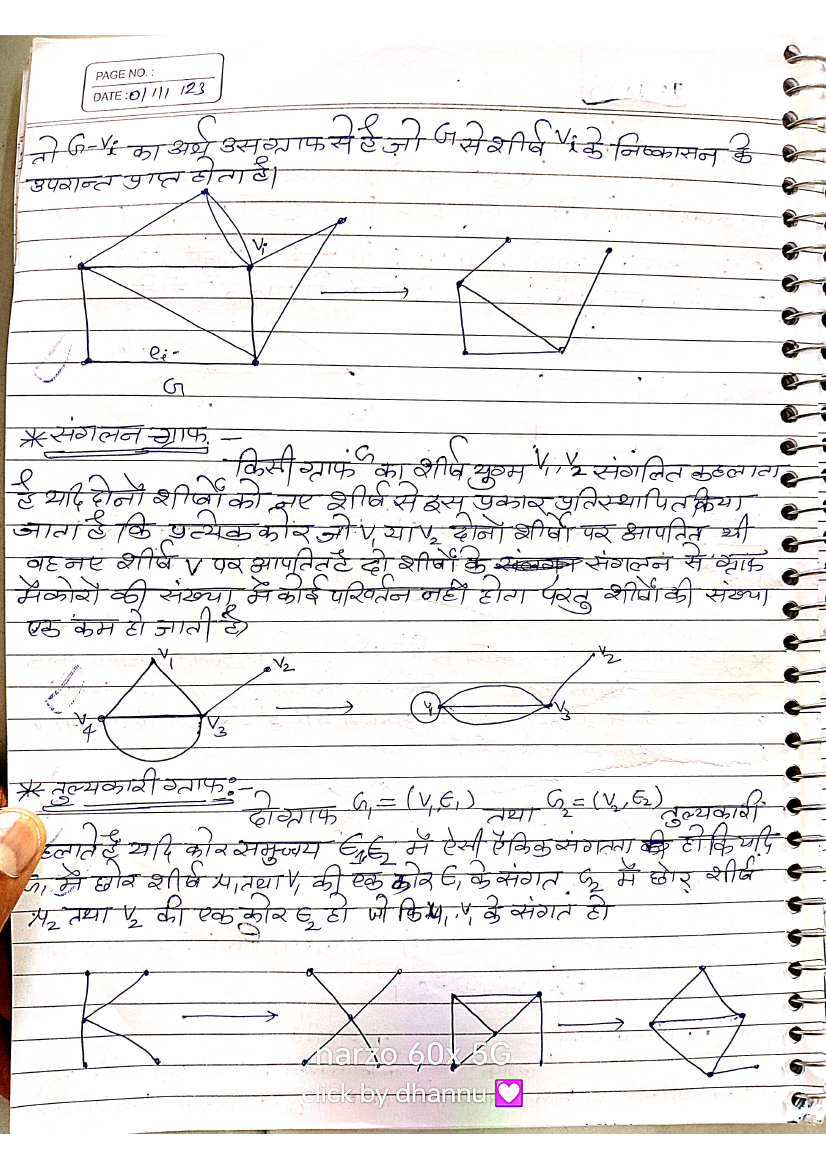 PAGE NO. :
DATE : 01/11/123
तो G-Vi का अर्थ उस ग्राफ से है जो G से शीर्ष Vi के निष्कासन के
उपरान्त प्राप्त होता है।
Vi
ei
G
* संगलन ग्राफ -
किसी ग्राफ G का शीर्ष युग्म V1, V2 संगलित कहलाता
है यदि दोनों शीर्षों को नए शीर्ष से इस प्रकार प्रतिस्थापित किया
जाता है कि प्रत्येक कोर जो V1 या V2 दोनों शीर्षों पर आपतित थी
वह नए शीर्ष V पर आपतित है दो शीर्षों के संगलन से ग्राफ
में कोरों की संख्या में कोई परिवर्तन नहीं होता परंतु शीर्षों की संख्या
एक कम हो जाती है
V1 V2 V2
V4 V3 V3
* तुल्यकारी ग्राफ :-
दो ग्राफ G1 = (V1, E1) तथा G2 = (V2, E2) तुल्यकारी
हलाते हैं यदि कोर समुच्चय E1 E2 में ऐसी एकैक संगतता हो कि यदि
में छोर शीर्ष तथा V1 की एक कोर E1 के संगत G2 में छोर शीर्ष
तथा V2 की एक कोर E2 हो जो कि V1 के संगत हो
narzo 60x 5G
click by dhannu